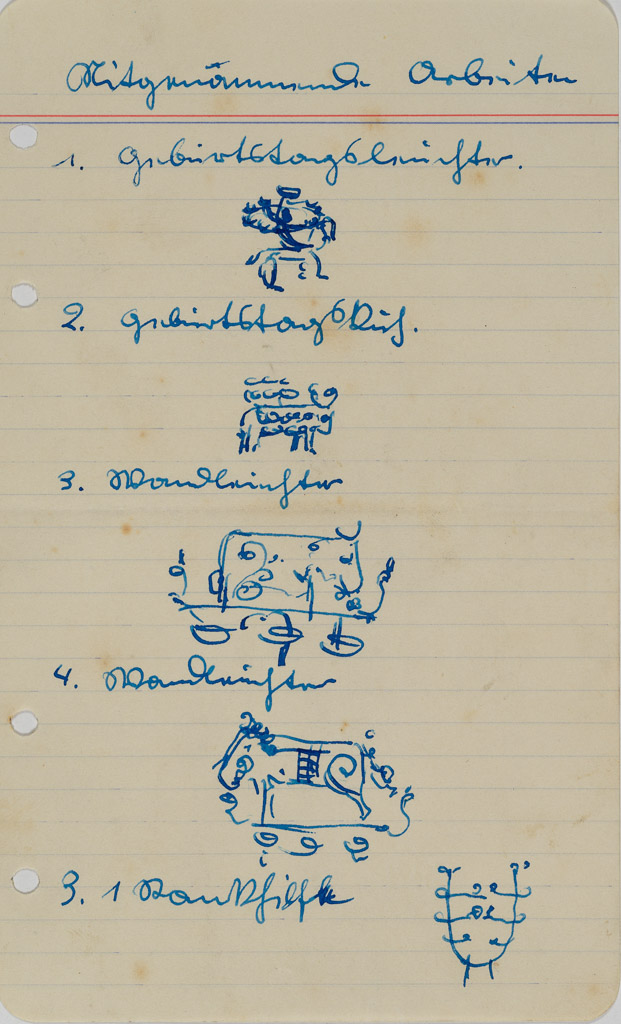 Mitgenommene Arbeiten
1. Geburtstagsleuchter.
2. Geburtstagskuh.
3. Wandleuchter
4. Wandleuchter
3. 1